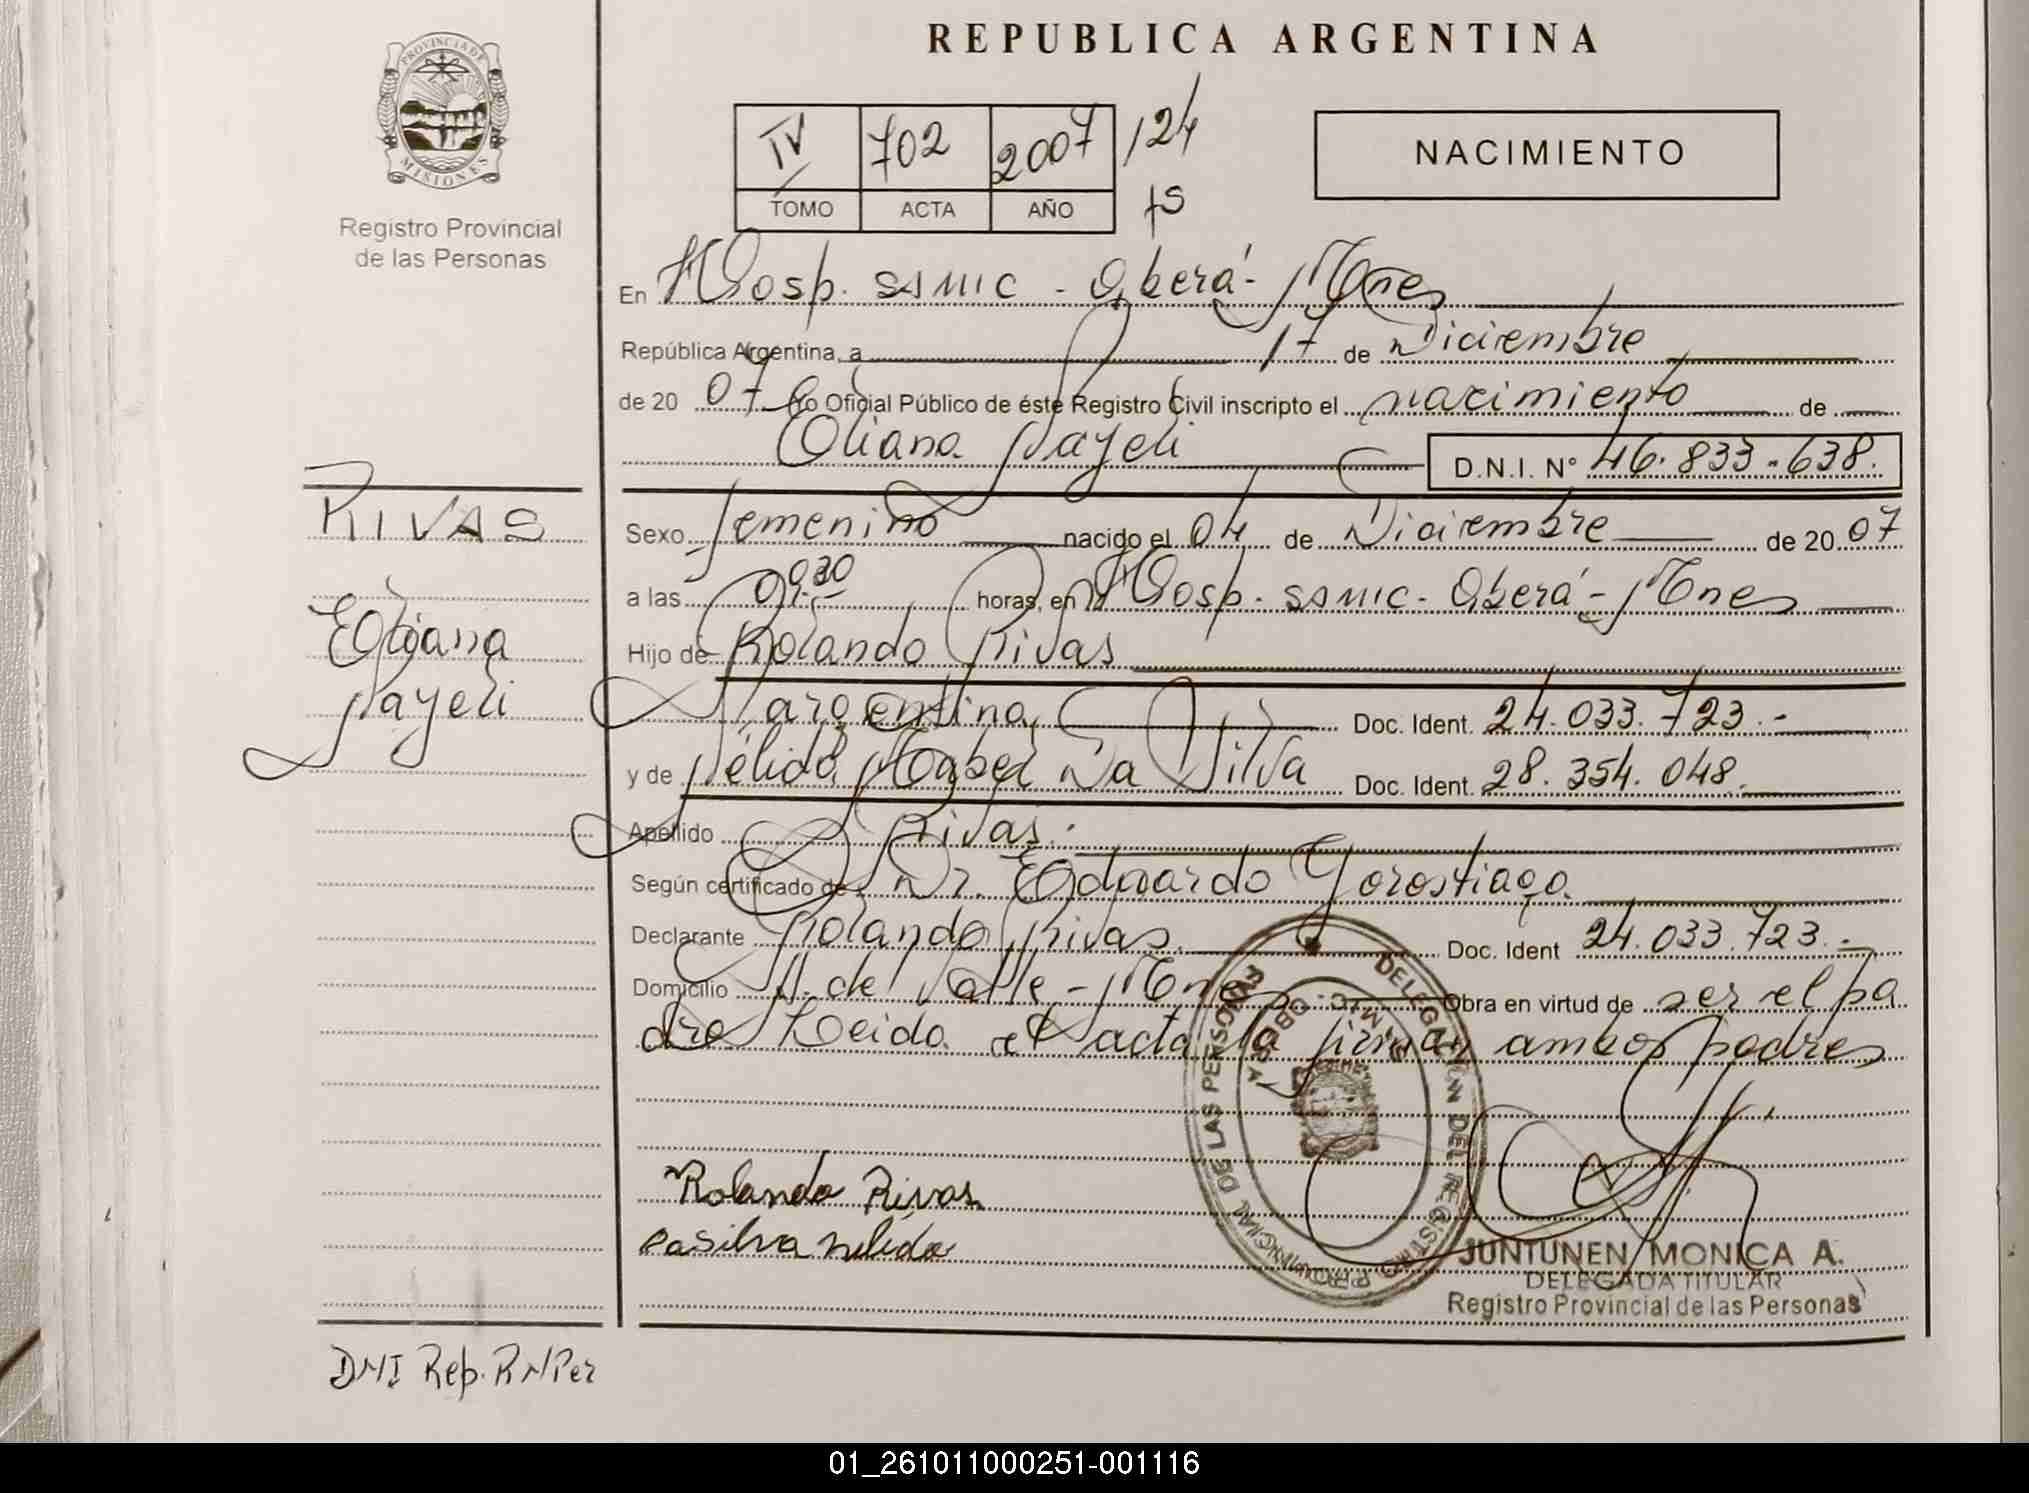 REPUBLICA ARGENTINA
PROVINCIA DE
MISIONES
Registro Provincial
de las Personas
IV 702 2007 /24
TOMO ACTA AÑO
NACIMIENTO
En Hosp. SAMIC - Oberá - Mnes
República Argentina, a 17 de Diciembre
de 20 07 Yo Oficial Público de éste Registro Civil inscripto el nacimiento de
Eliana Nayeli D.N.I. N° 46.833.638.
RIVAS
Eliana
Nayeli
Sexo femenino nacido el 04 de Diciembre de 20 07
a las horas, en Hosp. SAMIC - Oberá - Mnes
Hijo de Rolando Rivas
Argentina Doc. Ident. 24.033.723.-
y de Nélida Mabel Da Silva Doc. Ident. 28.354.048.
Apellido Rivas.
Según certificado de Dr. Eduardo Gorostiaga
Declarante Rolando Rivas. Doc. Ident 24.033.723.-
Domicilio A. del Valle - Mnes Obra en virtud de ser el pa
dre Leida el acta la firman ambos padres
DELEGACIÓN DEL REGISTRO PROVINCIAL DE LAS PERSONAS
Rolando Rivas
Dasilva nelida
JUNTUNEN MONICA A.
DELEGADA TITULAR
Registro Provincial de las Personas
DNI Rep. RN/Per
01_261011000251-001116